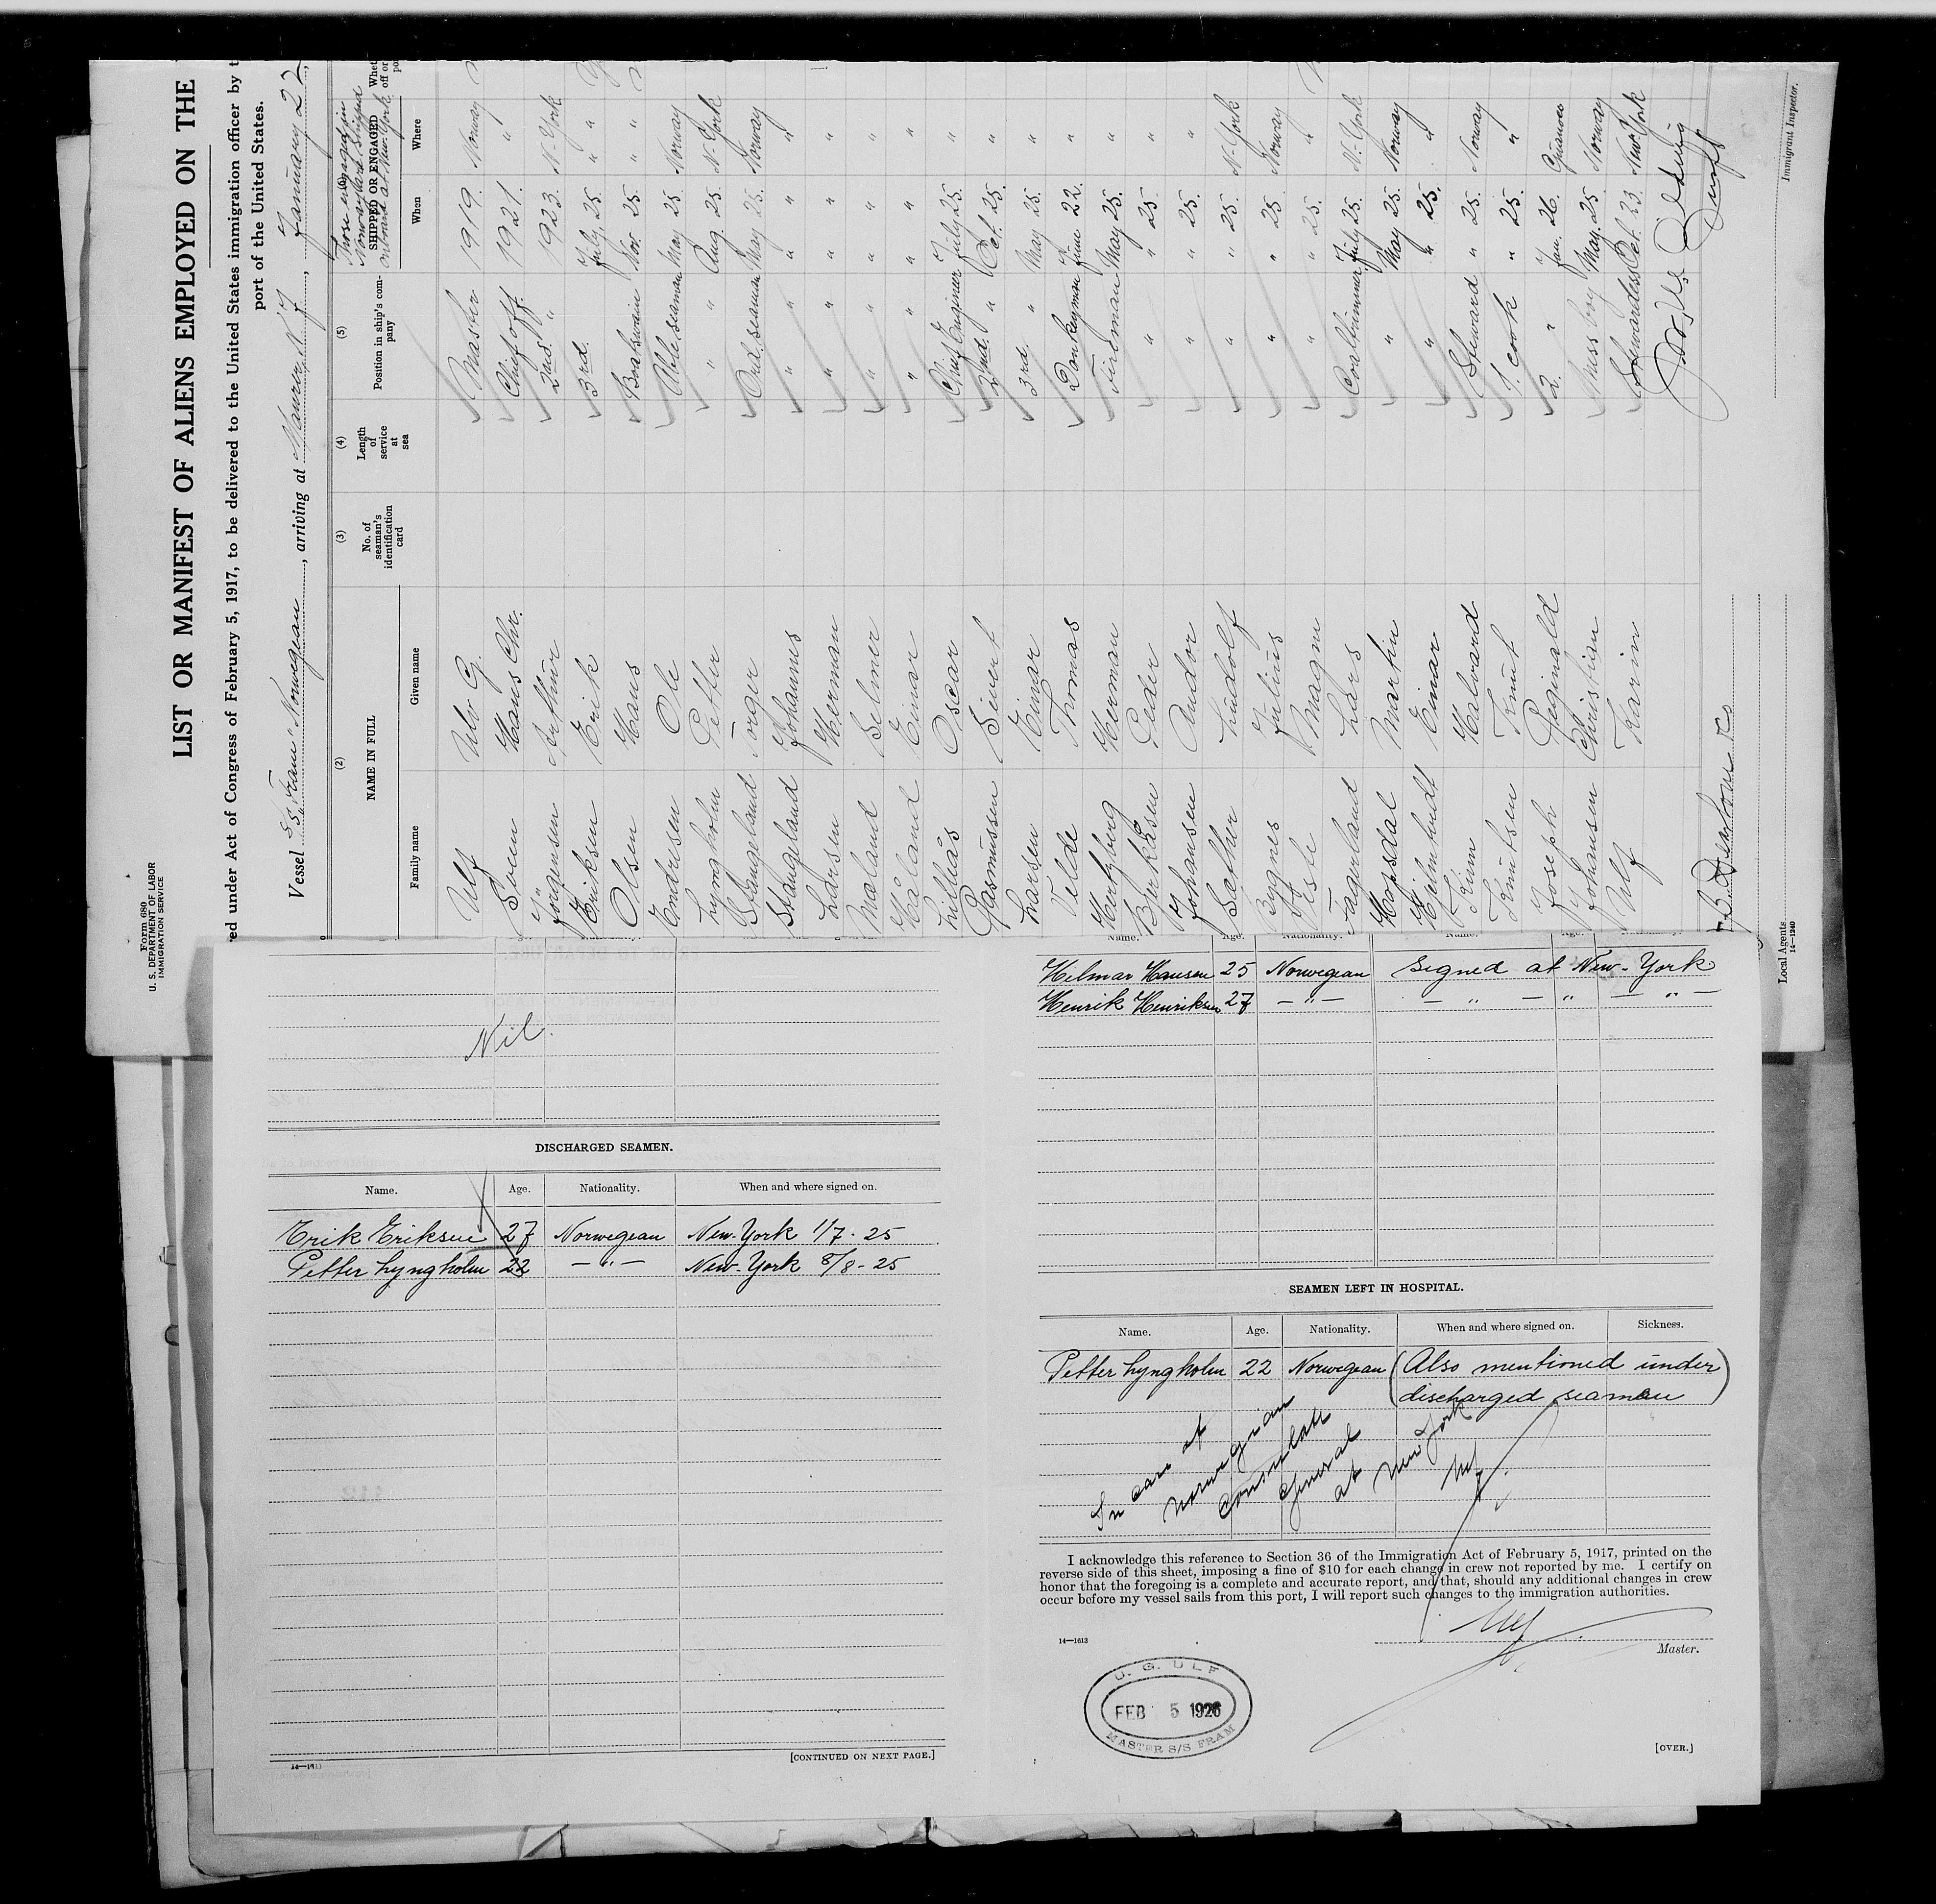 Form 680
U. S. DEPARTMENT OF LABOR
IMMIGRATION SERVICE
LIST OR MANIFEST OF ALIENS EMPLOYED ON THE
ed under Act of Congress of February 5, 1917, to be delivered to the United States immigration officer by t
port of the United States.
Vessel S/S "Fram" Norwegean, arriving at Maurer, N. J., January 27,
(2) (3) (4) (5)
NAME IN FULL No. of seaman's identification card Length of service at sea Position in ship's company SHIPPED OR ENGAGED
Those engaged in Norway are shipped onboard at New-York
Family name Given name When Where
Ulf Ulv G. Master 1919. Norway
Soeen Hans Chr. Chief off. 1921. "
Jörgensen Arthur 2nd. " 1923. N-York
Eriksen Erik 3rd. July 25. "
Olsen Hans Boatswain Nov. 25. "
Endresen Ole Able seaman May 25. Norway
Lyngholm Petter " Aug. 25. N-York
Stangeland Torger Ord. seaman May 25. Norway
Stangeland Johannes " " "
Larsen Herman " " "
Maland Selmer " " "
Håland Einar " " "
Lilliås Oscar Chief Engineer July 25. "
Rasmussen Sivert 2nd. " Oct. 25. "
Larsen Einar 3rd. " May 25. "
Velde Thomas Donkeyman June 22. "
Hertzberg Herman Fireman May 25. "
Birkåsen Peder " " 25. "
Johansen Andor " " 25. "
Sæther Ludolf " " 25. N-York
Bugnes Julius " " 25. Norway
Neste Magne " " 25. "
Fagerland Lars Coaltrimmer July 25. N-York
Hopsdal Martin " May 25. Norway
Helmhudt Einar " " 25. "
Kinn Halvard Steward " 25. Norway
Knutsen Knut 1. cook " 25. "
Joseph Reginald 2. " Jan. 26.
Johansen Christian Mess boy May. 25 Norway
Ulf Karin Stewardess Oct. 23. New-York
Immigrant Inspector.
Local Agents
14—1240
Nil.
DISCHARGED SEAMEN.
Name. Age. Nationality. When and where signed on.
Erik Eriksen 27 Norwegean New-York 1/7 - 25
Petter Lyngholm 22 — " — New-York 8/8 - 25
[CONTINUED ON NEXT PAGE.]
Name. Age. Nationality. Name. Age.
Hilmar Hansen 25 Norwegean Signed at New-York
Henrik Henriksen 27 — " — — " — " — " —
SEAMEN LEFT IN HOSPITAL.
Name. Age. Nationality. When and where signed on. Sickness.
Petter Lyngholm 22 Norwegean (Also mentioned under
discharged seamen)
In care of
Norwegian
Consulate
General
at New York
Ulf
I acknowledge this reference to Section 36 of the Immigration Act of February 5, 1917, printed on the
reverse side of this sheet, imposing a fine of $10 for each change in crew not reported by me. I certify on
honor that the foregoing is a complete and accurate report, and that, should any additional changes in crew
occur before my vessel sails from this port, I will report such changes to the immigration authorities.
14—1613
Ulf
Master.
U. G. ULF
FEB 5 1926
MASTER S/S FRAM
[OVER.]